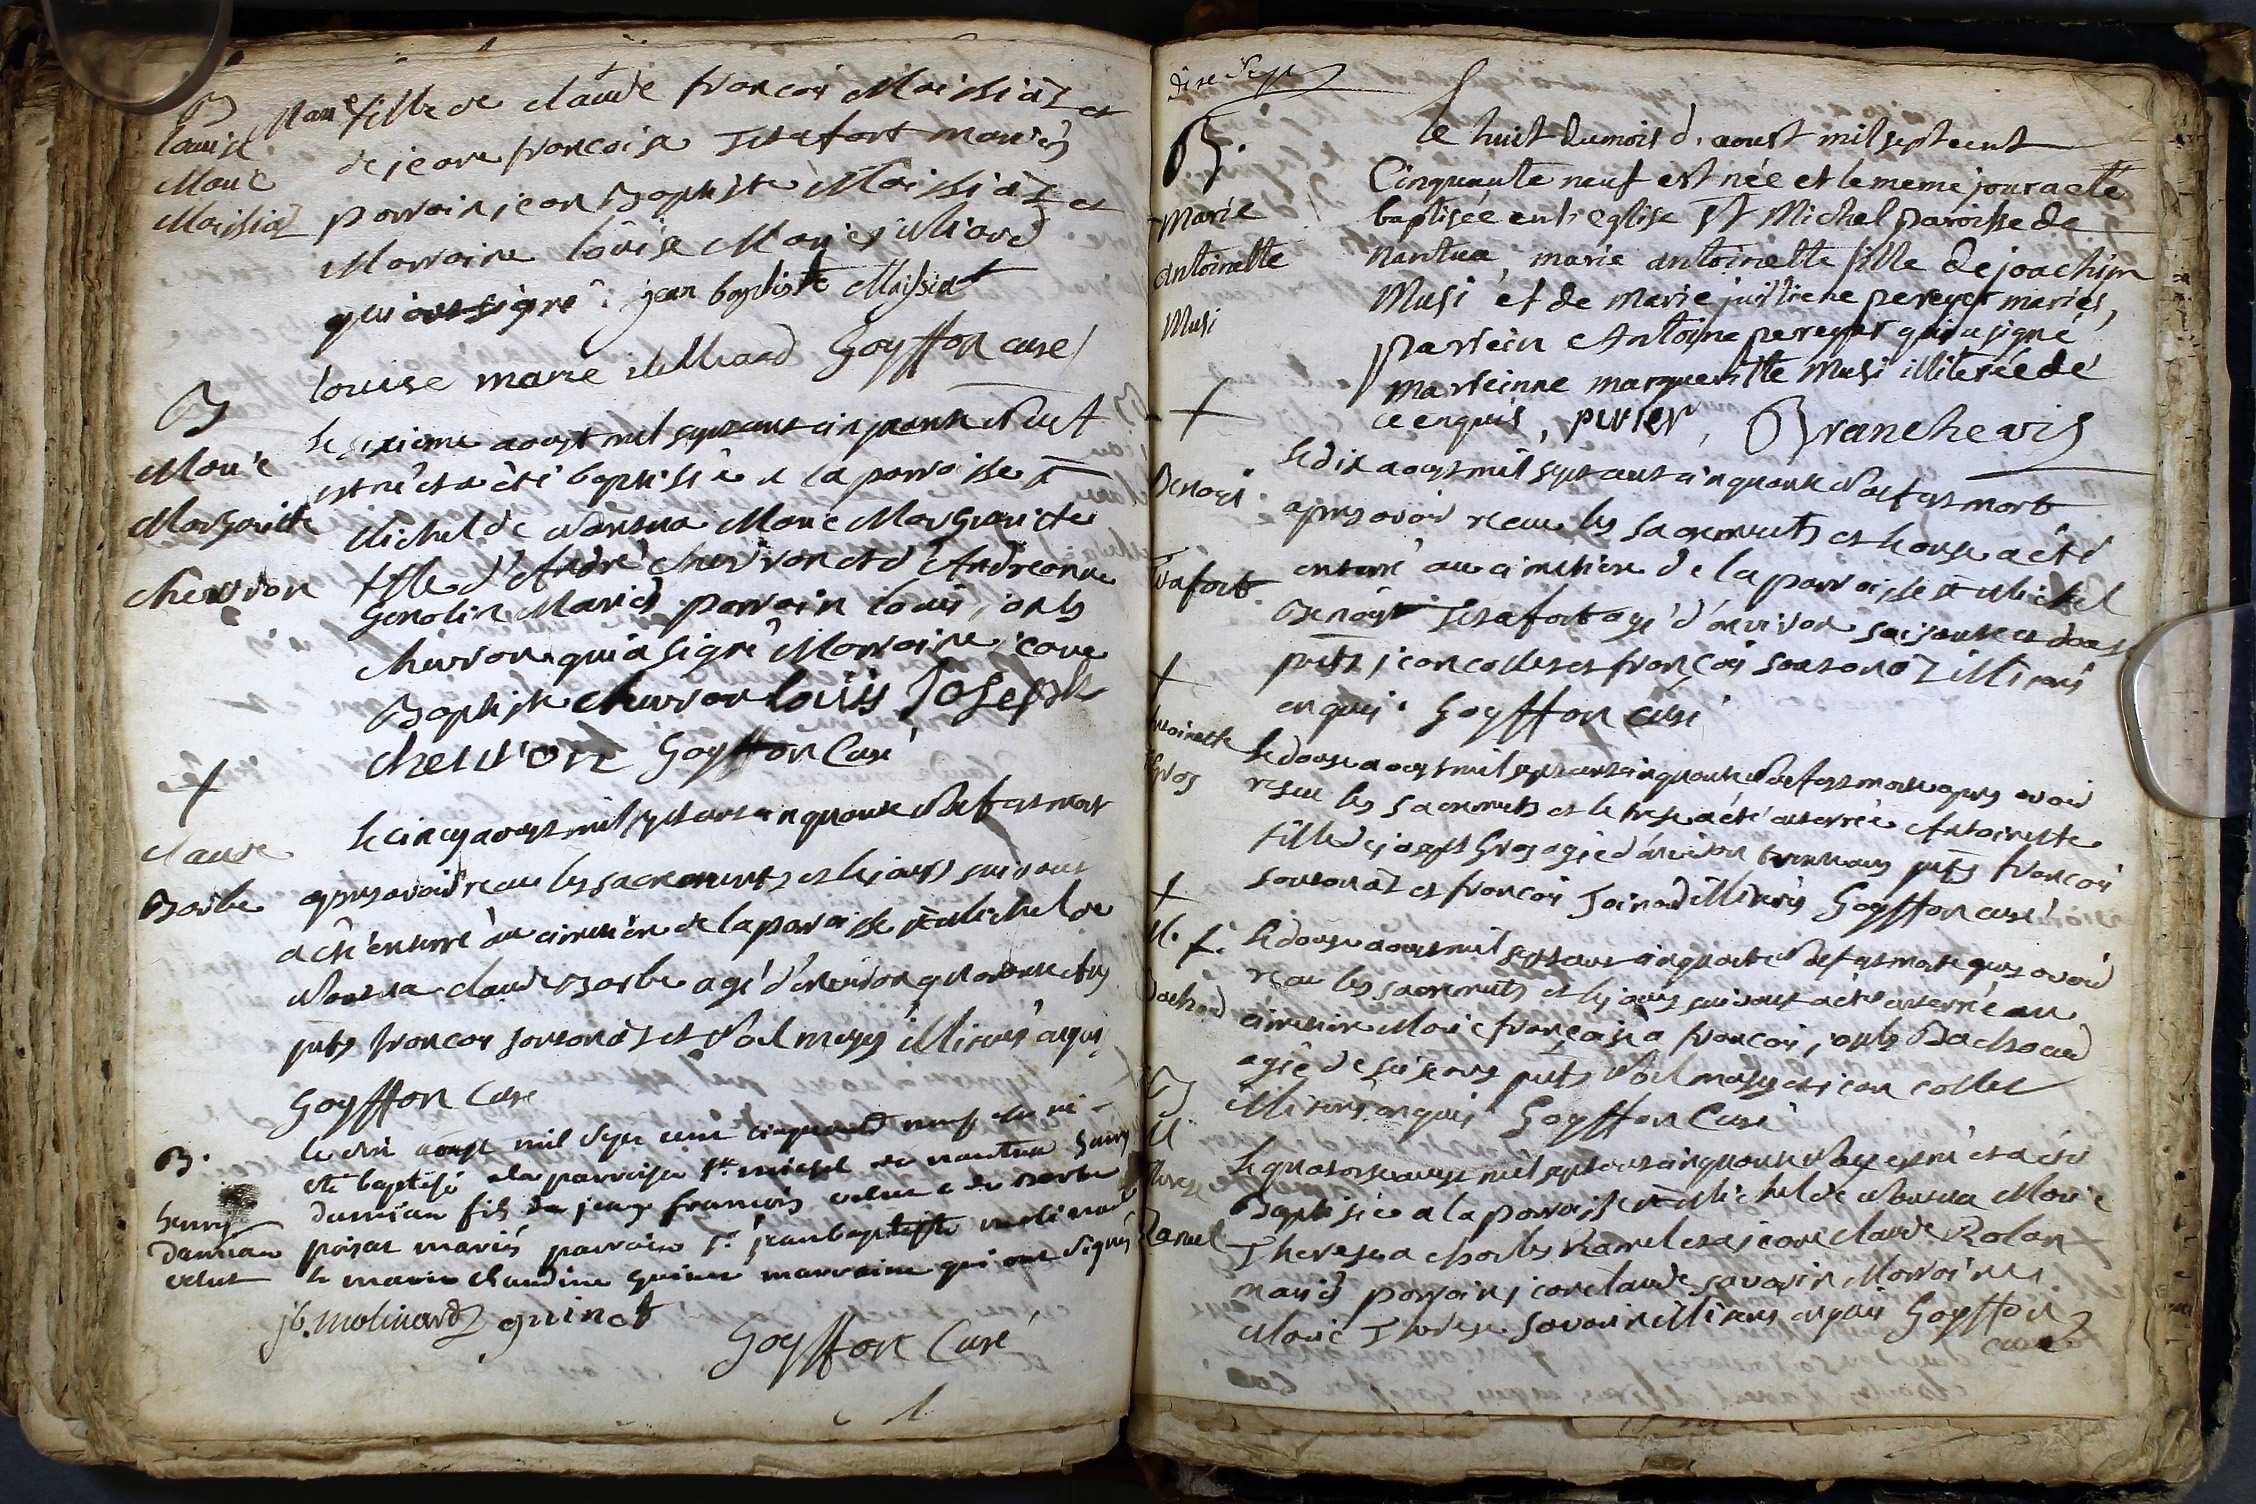 B
Louise
Marie
Maissiat
Marie fille de claude françois Maissiat et
de jeane françoise Travfort mariés
parrain jean Baptiste Maissiat et
Marraine loûise Marie julliard
qui ont signé. jean baptiste Maissiat
louise marie juilliard Goyffon curé
B
Marie
Margueritte
chevron
le sixieme aoust mil sept cent cinquante Neuf
est né et a été baptisée a la parroisse St
Michel de Nantua Marie Margueritte
fille d'André chevron et d'Andreanne
Genolin Mariés parrain louis joseph
chevron qui a signé Marraine jeane
Baptiste chevron loüis Joseph
chevron Goyffon Curé
+
claude
Barbe
le cinq aoust mil sept cent cinquante Neuf est mort
apres avoir receu les sacrements et le jour suivant
a été enterré au cimetiere de la parroisse St Michel de
Nantua claude Barbe agé d'environ quarante ans
pnts françois sonsonat et Noel illiterés enquis
Goyffon Curé
B.
henry
damian
velut
le dix aoust mil sept cent cinquante neuf est né
été baptisé a la parroisse St michel de nantua henry
damian fils de jean francois velut et de
poizat mariés parrain Sr jean baptiste molinard
et marie claudine guinet marraine qui ont signés
jb. molinard guinet
Goyffon Curé
dixe Sept
B.
Marie
Antoinette
Musi
Le huit du mois d'aoust mil sept cent
Cinquante neuf est née et le meme jour a eté
baptisée en l'eglise St Michel paroisse de
Nantua, marie antoinette fille de joachim
Musi et de Marie jullienne pereyer mariés,
parrein Antoine pereyer qui a signé
marreinne marguerite Musi illiterée de
ce enquis, perier, Branche vic
+
Benoist
Travfort
le dix aoust mil sept cent cinquante Neuf est mort
apres avoir receu les sacrements et l'onze a été
enterré au cimetiere de la parroisse St Michel
Benoist Travfort agé d'environ soisante et douse
pnts jean collet et françois sonsonat illiterés
enquis. Goyffon Curé
+
Antoinette
Gros
le douse aoust mil sept cent cinquante Neuf est morte apres avoir
receu les sacrements et le trese a été enterrée Antoinette
fille de joseph Gros agée d'environ trente ans pnts françois
sonsonat et françois illiterés Goyffon curé
+
M. f.
Bachod
le douse aoust mil sept cent cinquante Neuf est morte apres avoir
receu les sacrements et le jour suivant a été enterrée au
cimetiere Marie françoise a françois joseph Bachod
agée de seise ans pnts Noel et jean collet
illiterés enquis Goyffon Curé
B
M
therese
Ravel
le quatorse aoust mil sept cent cinquante Neuf est née et a été
Baptisée a la parroisse St Michel de Nantua Marie
Therese a charles Ravel et a jeane claude Rolan
mariés parrain jean claude savarin Marraine
Marie Therese savarin illiterés enquis Goyffon
curé